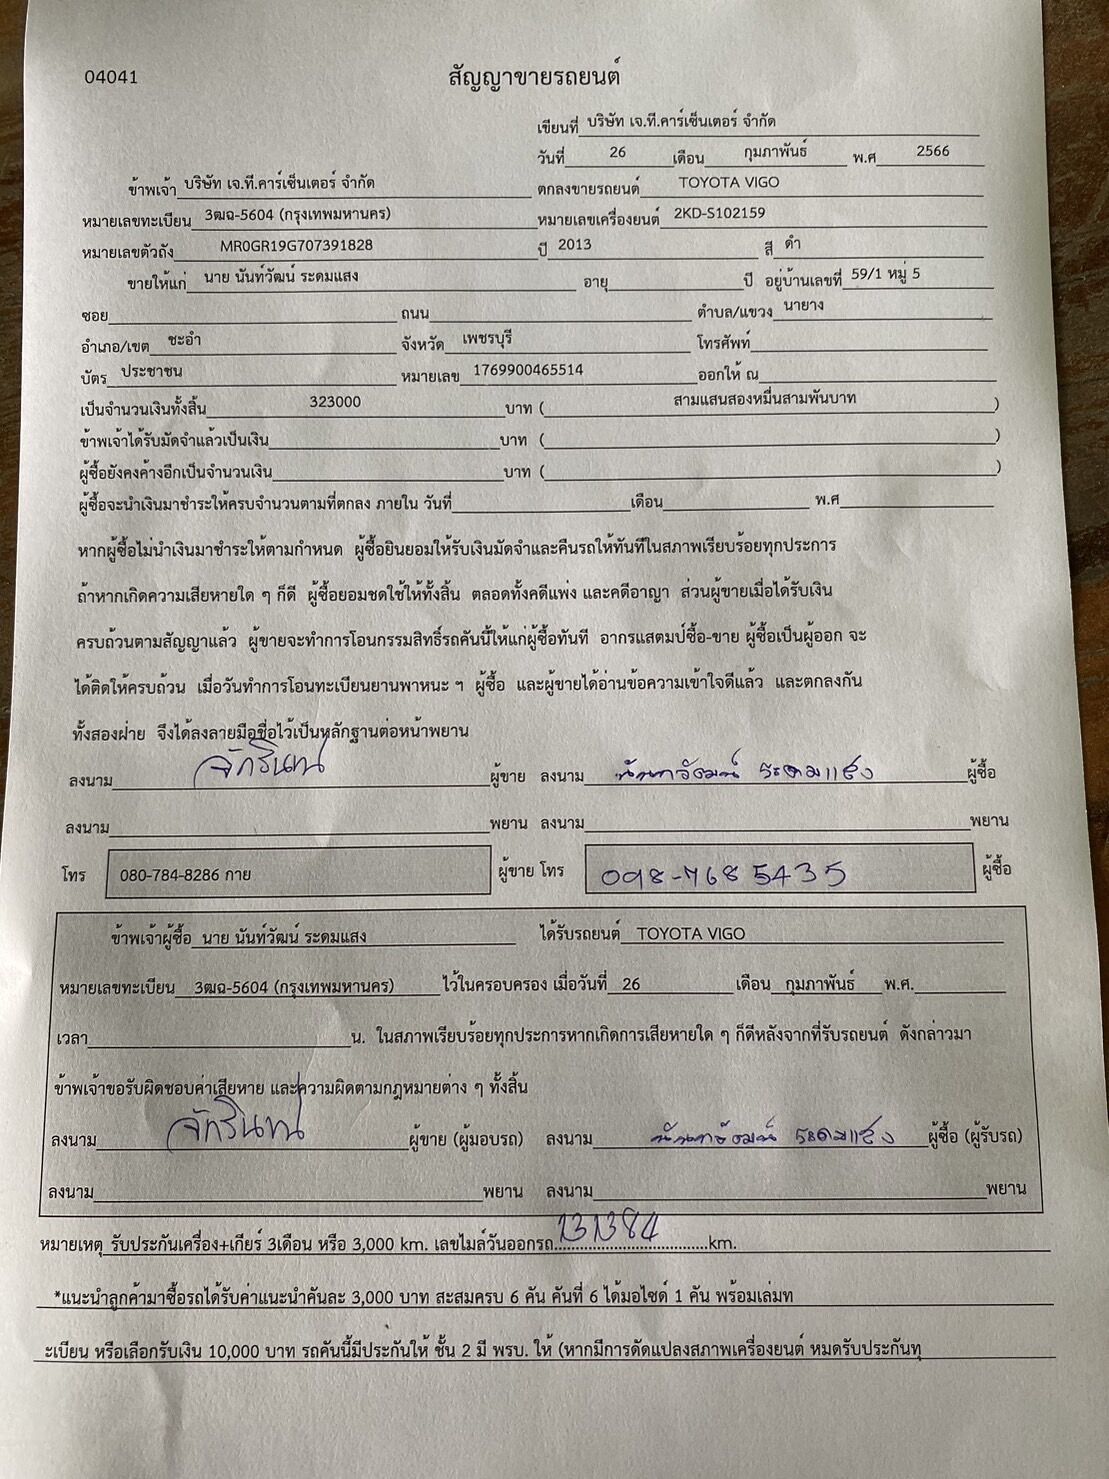 04041
สัญญาขายรถยนต์
เขียนที่ บริษัท เจ.ที.คาร์เซ็นเตอร์ จำกัด
วันที่ 26 เดือน กุมภาพันธ์ พ.ศ 2566
ข้าพเจ้า บริษัท เจ.ที.คาร์เซ็นเตอร์ จำกัด ตกลงขายรถยนต์ TOYOTA VIGO
หมายเลขทะเบียน 3ฒฉ-5604 (กรุงเทพมหานคร) หมายเลขเครื่องยนต์ 2KD-S102159
หมายเลขตัวถัง MR0GR19G707391828 ปี 2013 สี ดำ
ขายให้แก่ นาย นันท์วัฒน์ ระดมแสง อายุ ปี อยู่บ้านเลขที่ 59/1 หมู่ 5
ซอย ถนน ตำบล/แขวง นายาง
อำเภอ/เขต ชะอำ จังหวัด เพชรบุรี โทรศัพท์
บัตร ประชาชน หมายเลข 1769900465514 ออกให้ ณ
เป็นจำนวนเงินทั้งสิ้น 323000 บาท ( สามแสนสองหมื่นสามพันบาท )
ข้าพเจ้าได้รับมัดจำแล้วเป็นเงิน บาท ( )
ผู้ซื้อยังคงค้างอีกเป็นจำนวนเงิน บาท ( )
ผู้ซื้อจะนำเงินมาชำระให้ครบจำนวนตามที่ตกลง ภายใน วันที่ เดือน พ.ศ
หากผู้ซื้อไม่นำเงินมาชำระให้ตามกำหนด ผู้ซื้อยินยอมให้รับเงินมัดจำและคืนรถให้ทันทีในสภาพเรียบร้อยทุกประการ
ถ้าหากเกิดความเสียหายใด ๆ ก็ดี ผู้ซื้อยอมชดใช้ให้ทั้งสิ้น ตลอดทั้งคดีแพ่ง และคดีอาญา ส่วนผู้ขายเมื่อได้รับเงิน
ครบถ้วนตามสัญญาแล้ว ผู้ขายจะทำการโอนกรรมสิทธิ์รถคันนี้ให้แก่ผู้ซื้อทันที อากรแสตมป์ซื้อ-ขาย ผู้ซื้อเป็นผู้ออก จะ
ได้ติดให้ครบถ้วน เมื่อวันทำการโอนทะเบียนยานพาหนะ ฯ ผู้ซื้อ และผู้ขายได้อ่านข้อความเข้าใจดีแล้ว และตกลงกัน
ทั้งสองฝ่าย จึงได้ลงลายมือชื่อไว้เป็นหลักฐานต่อหน้าพยาน
ลงนาม จักรินทน์ ผู้ขาย ลงนาม นันทวัฒน์ ระดมแสง ผู้ซื้อ
ลงนาม พยาน ลงนาม พยาน
โทร 080-784-8286 กาย ผู้ขาย โทร 098-7685435 ผู้ซื้อ
ข้าพเจ้าผู้ซื้อ นาย นันท์วัฒน์ ระดมแสง ได้รับรถยนต์ TOYOTA VIGO
หมายเลขทะเบียน 3ฒฉ-5604 (กรุงเทพมหานคร) ไว้ในครอบครอง เมื่อวันที่ 26 เดือน กุมภาพันธ์ พ.ศ.
เวลา น. ในสภาพเรียบร้อยทุกประการหากเกิดการเสียหายใด ๆ ก็ดีหลังจากที่รับรถยนต์ ดังกล่าวมา
ข้าพเจ้าขอรับผิดชอบค่าเสียหาย และความผิดตามกฎหมายต่าง ๆ ทั้งสิ้น
ลงนาม จักรินทน์ ผู้ขาย (ผู้มอบรถ) ลงนาม นันทวัฒน์ ระดมแสง ผู้ซื้อ (ผู้รับรถ)
ลงนาม พยาน ลงนาม พยาน
หมายเหตุ รับประกันเครื่อง+เกียร์ 3เดือน หรือ 3,000 km. เลขไมล์วันออกรถ 131384 km.
*แนะนำลูกค้ามาซื้อรถได้รับค่าแนะนำคันละ 3,000 บาท สะสมครบ 6 คัน คันที่ 6 ได้มอไซด์ 1 คัน พร้อมเล่มท
ะเบียน หรือเลือกรับเงิน 10,000 บาท รถคันนี้มีประกันให้ ชั้น 2 มี พรบ. ให้ (หากมีการดัดแปลงสภาพเครื่องยนต์ หมดรับประกันทุ